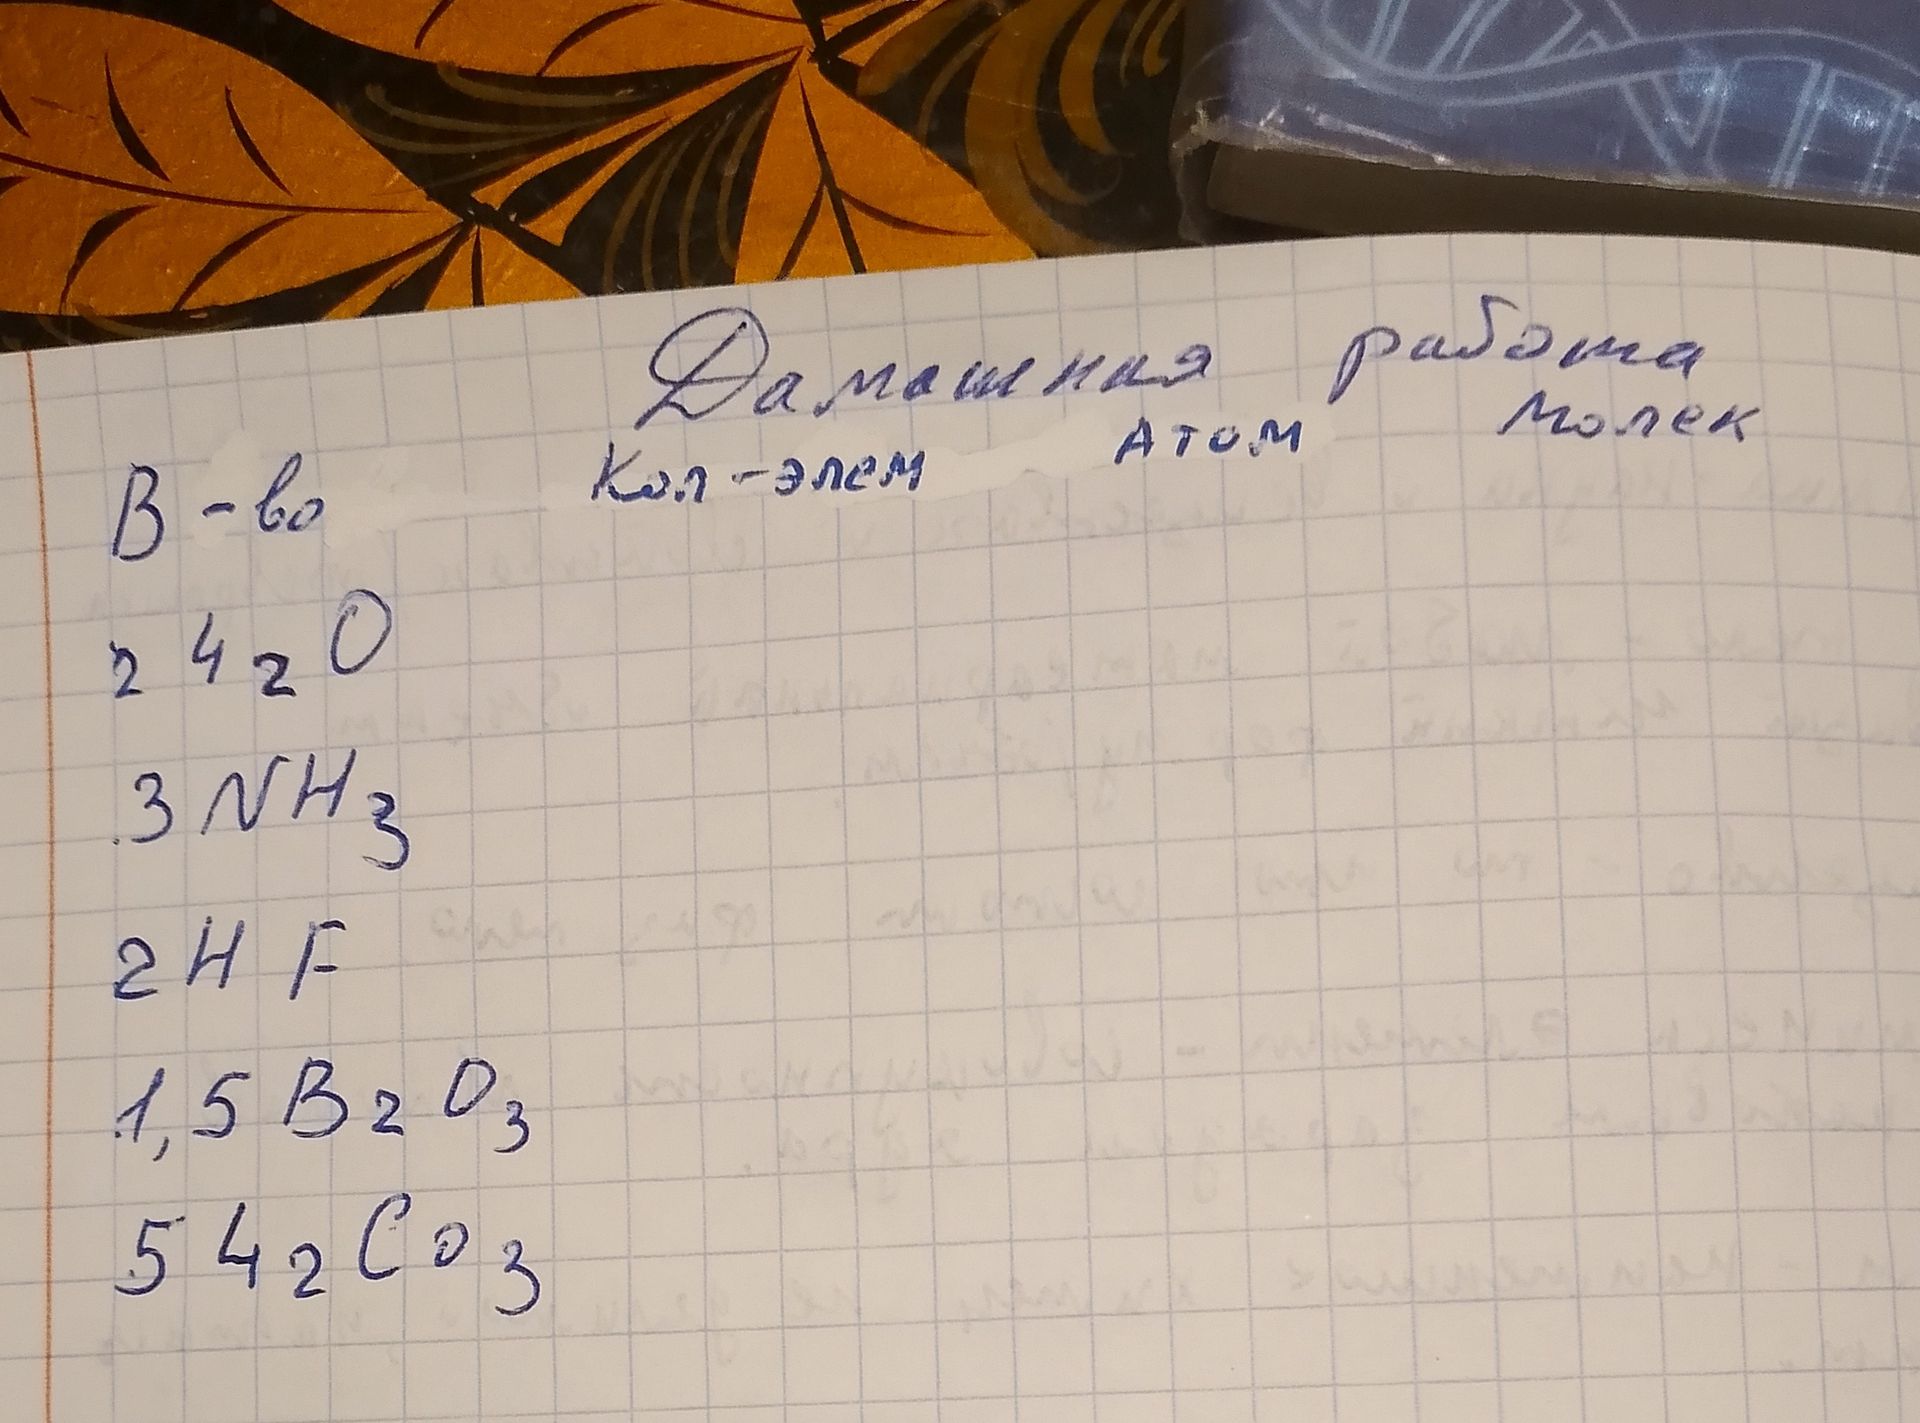 Дамашная работа
В-во Кол-элем Атом Молек
2 4₂O
3 NH₃
2 H F
1,5 B₂ O₃
5 4₂ Co₃